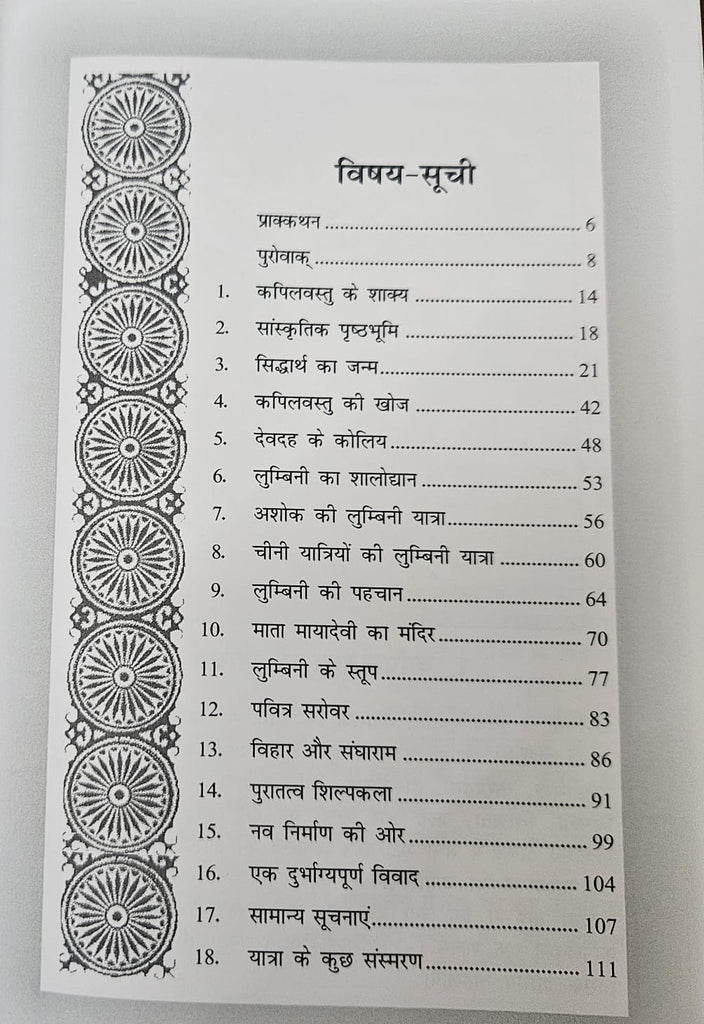 विषय-सूची
प्राक्कथन ........................................................ 6
पुरोवाक् .......................................................... 8
1. कपिलवस्तु के शाक्य ................................. 14
2. सांस्कृतिक पृष्ठभूमि .................................. 18
3. सिद्धार्थ का जन्म........................................ 21
4. कपिलवस्तु की खोज ................................. 42
5. देवदह के कोलिय....................................... 48
6. लुम्बिनी का शालोद्यान ................................ 53
7. अशोक की लुम्बिनी यात्रा........................... 56
8. चीनी यात्रियों की लुम्बिनी यात्रा .................. 60
9. लुम्बिनी की पहचान ................................... 64
10. माता मायादेवी का मंदिर............................ 70
11. लुम्बिनी के स्तूप........................................ 77
12. पवित्र सरोवर ............................................ 83
13. विहार और संघाराम .................................... 86
14. पुरातत्व शिल्पकला .................................... 91
15. नव निर्माण की ओर.................................... 99
16. एक दुर्भाग्यपूर्ण विवाद ............................. 104
17. सामान्य सूचनाएं........................................ 107
18. यात्रा के कुछ संस्मरण............................... 111